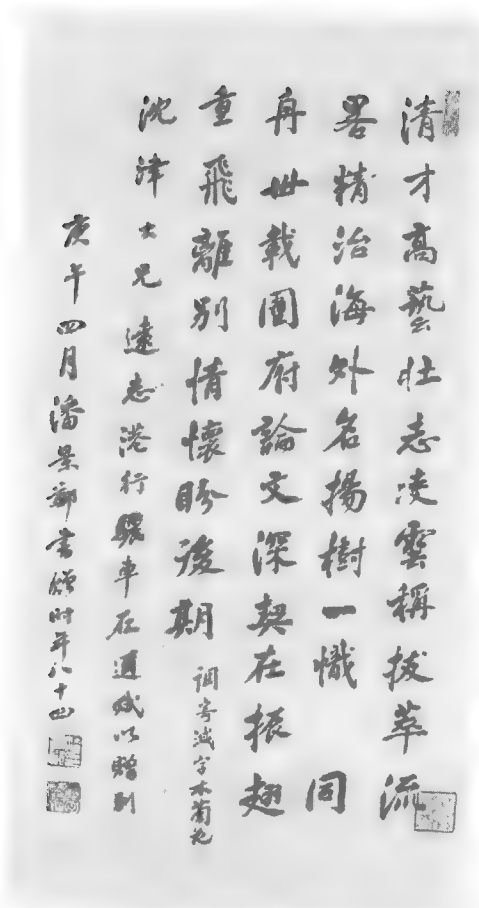 清才高藝壯志凌雲稱拔萃流
畧精治海外名揚樹一幟 同
舟卅載圖府論文深契在振翅
重飛離別情懷盼後期 調寄減字木蘭花
沈津大兄遠志港行車在邇賦以贈別
庚午四月潘景鄭書贈時年八十四